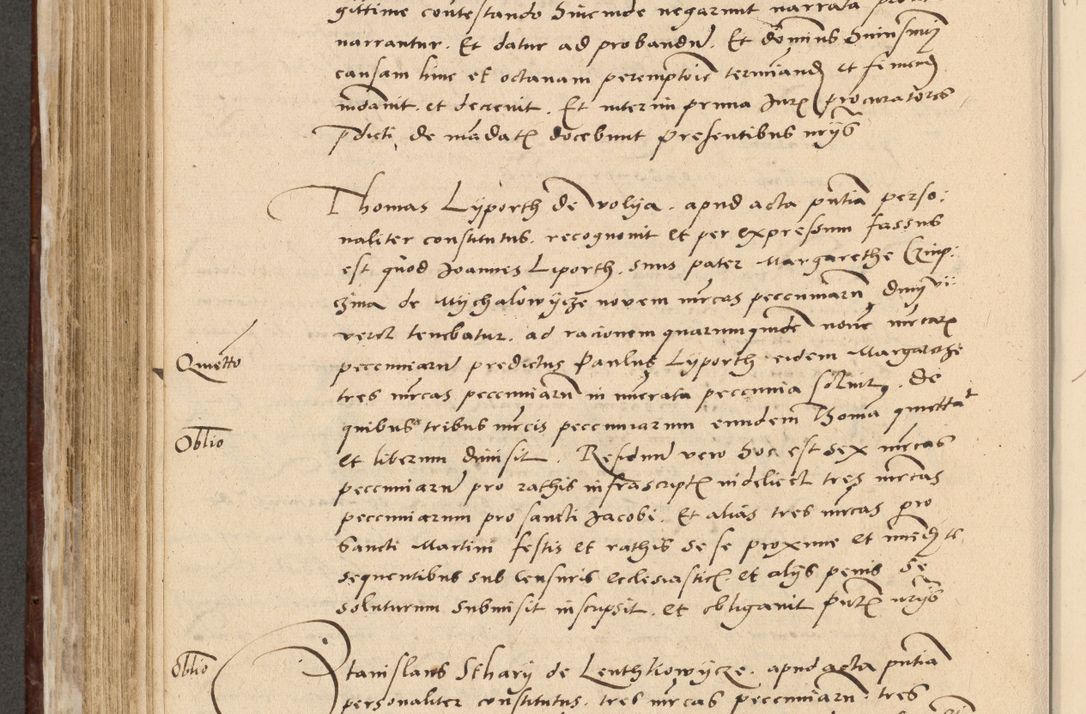 gittime contestando hincinde negarunt narrata pro
narrantur. Et datur ad probandu. Et dominus
causam hinc et octanam peremptorie terminand et
indauit. et decreuit. Et interim prima Jur procuratores
pdicti de mādat docebunt presentibus nrijs
Thomas Lyporth de volya. apud acta pntia perso:
naliter constitutus. recognouit et per expressum fassus
est quod Joannes Liporth. suus pater Margarethe Czup:
czina de Mychalowycze novem mrcas pecuniarū dum vi:
veret tenebatur. ad racionem quarumquidē nouē mrcar
Quietto
pecuniarū predictus Paulus Lyporth eidem Margarethe
tres mrcas pecuniarū in nuerata pecunia soluit. de
quibus tribus mrcis pecuniarum eundem Thomā quittat
Oblio
et liberum dimisit. Residuū vero hoc est sex mrcas
pecuniarū pro rathis infrascript videlicet tres mrcas
pecuniarum pro sancti Jacobi. Et alias tres mrcas pro
Sancti Martini festis et rathis de se proxime et
sequentibus sub censuris ecclesiastic et alijs penis se
soluturum submisit inscripsit. et obligauit pnt nrijs
Oblio
Stanislaus Schary de Lenthkowycze. apud acta pntia
personaliter constitutus. tres mrcas pecuniarū. tres